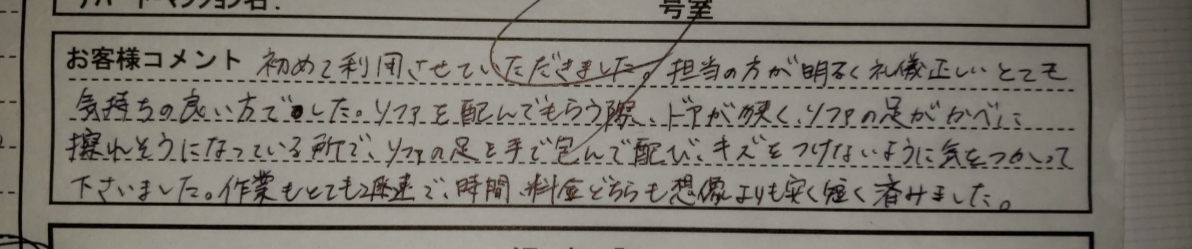 アパート・マンション名:
号室
お客様コメント 初めて利用させていただきました。担当の方が明るく礼儀正しいとても
気持ちの良い方でした。ソファを配んでもらう際、ドアが狭く、ソファの足がかべに
擦れそうになっている所で、ソファの足を手で包んで配び、キズをつけないように気をつかって
下さいました。作業もとても迅速で、時間、料金どちらも想像よりも安く短く済みました。